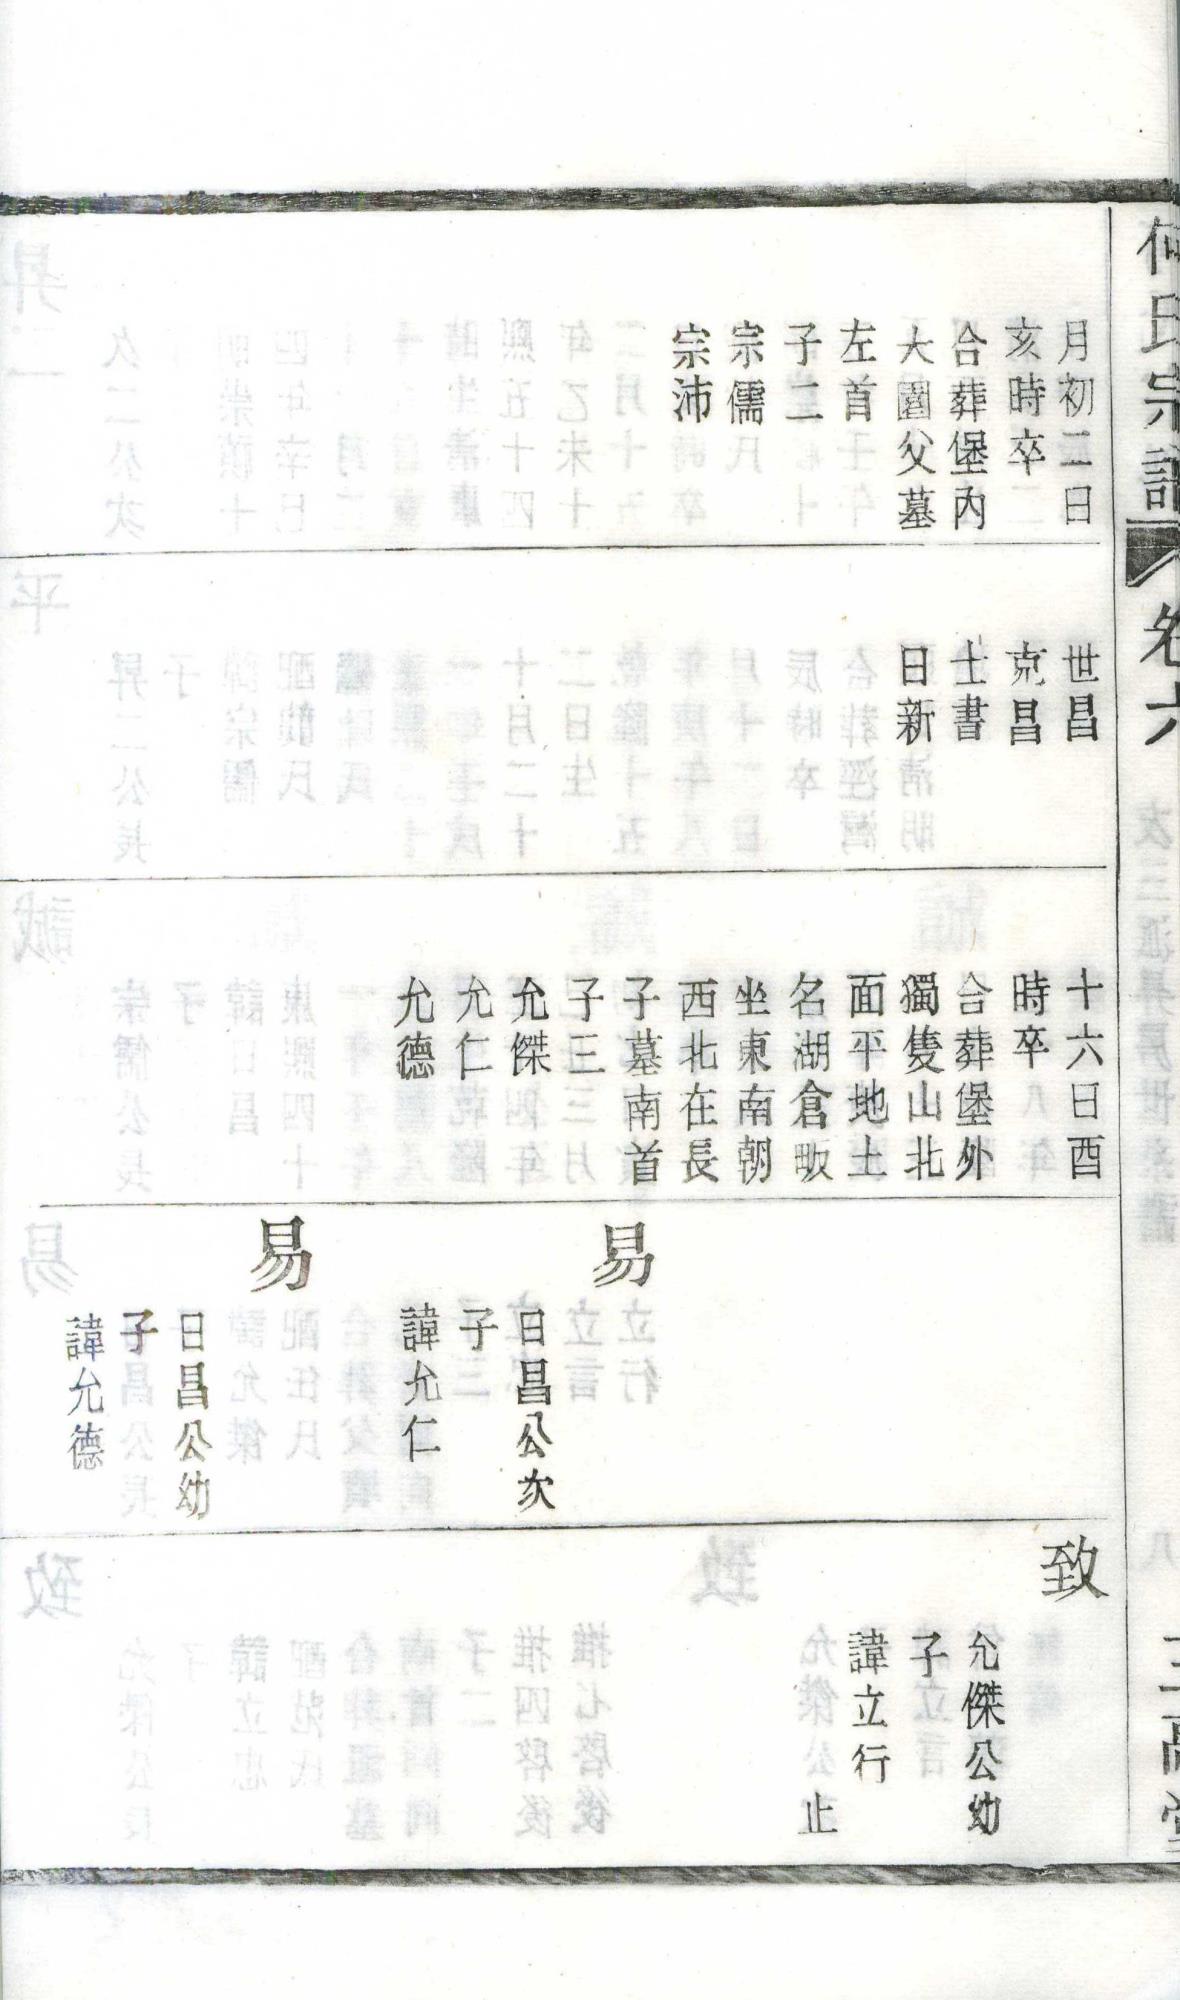 何氏宗譜
卷六
月初二日
亥時卒
合葬堡內
大園父墓
左首
子二
宗儒
宗沛
世昌
克昌
士書
日新
十六日酉
時卒
合葬堡外
獨隻山北
面平地土
名湖倉畈
坐東南朝
西北在長
子墓南首
子三
允傑
允仁
允德
易
日昌公次
子
諱允仁
易
日昌公幼
子
諱允德
致
允傑公幼
子
諱立行
止